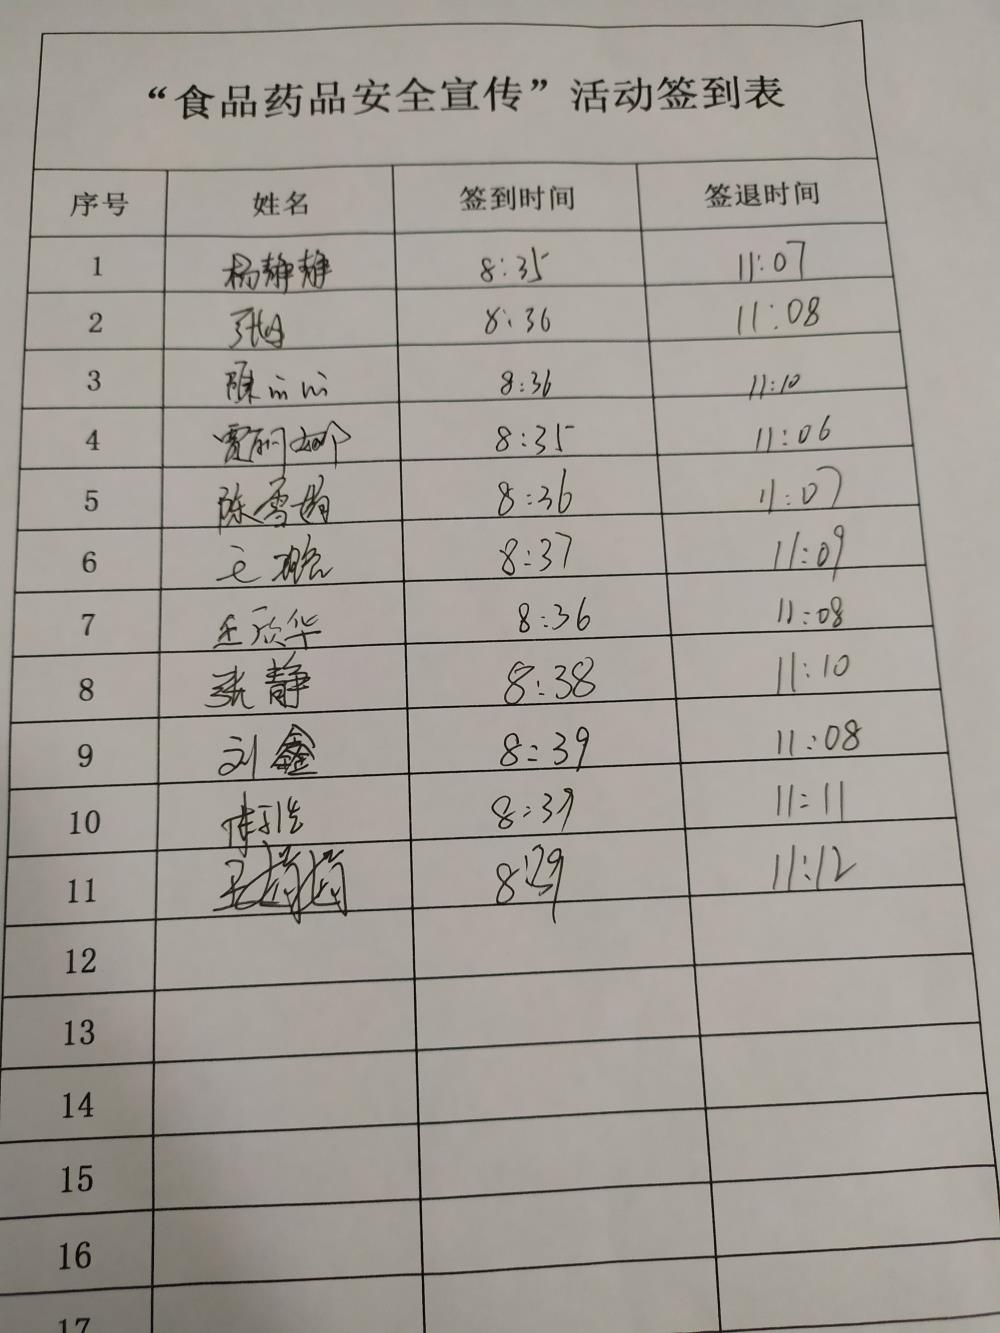 “食品药品安全宣传”活动签到表
序号 姓名 签到时间 签退时间
1 杨静静 8:35 11:07
2 8:36 11:08
3 8:36 11:10
4 贾丽娜 8:35 11:06
5 陈雪娟 8:36 11:07
6 8:37 11:09
7 王欣华 8:36 11:08
8 张静 8:38 11:10
9 刘鑫 8:39 11:08
10 8:39 11:11
11 王娟娟 11:12
12
13
14
15
16
17